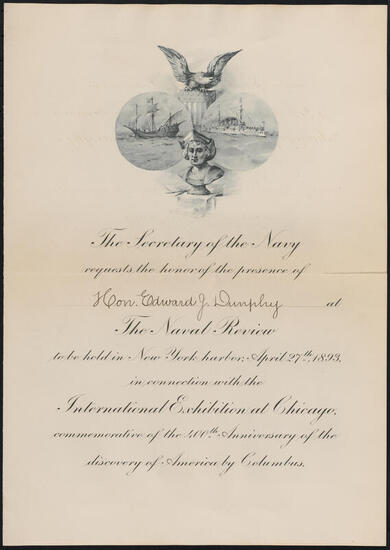 The Secretary of the Navy
requests the honor of the presence of
Hon. Edward J. Dunphy at
The Naval Review
to be held in New York harbor, April 27th, 1893,
in connection with the
International Exhibition at Chicago,
commemorative of the 400th Anniversary of the
discovery of America by Columbus.